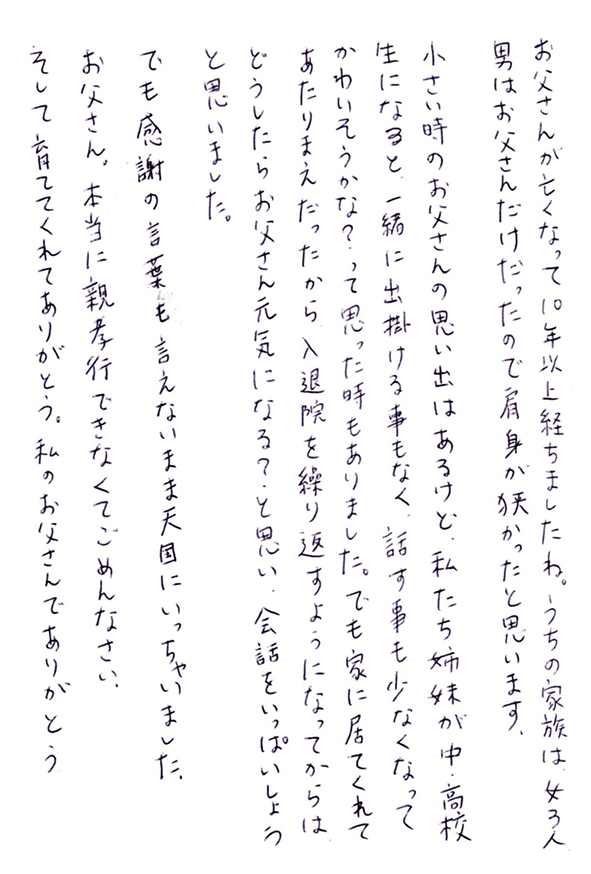 お父さんが亡くなって10年以上経ちましたね。うちの家族は、女3人
男はお父さんだけだったので肩身が狭かったと思います、
小さい時のお父さんの思い出はあるけど、私たち姉妹が中・高校
生になると、一緒に出掛ける事もなく、話す事も少なくなって
かわいそうかな?って思った時もありました。でも家に居てくれて
あたりまえだったから、入退院を繰り返すようになってからは
どうしたらお父さん元気になる?と思い、会話をいっぱいしょう
と思いました。
でも感謝の言葉も言えないまま天国にいっちゃいました、
お父さん。本当に親孝行できなくてごめんなさい、
そして育ててくれてありがとう。私のお父さんでありがとう